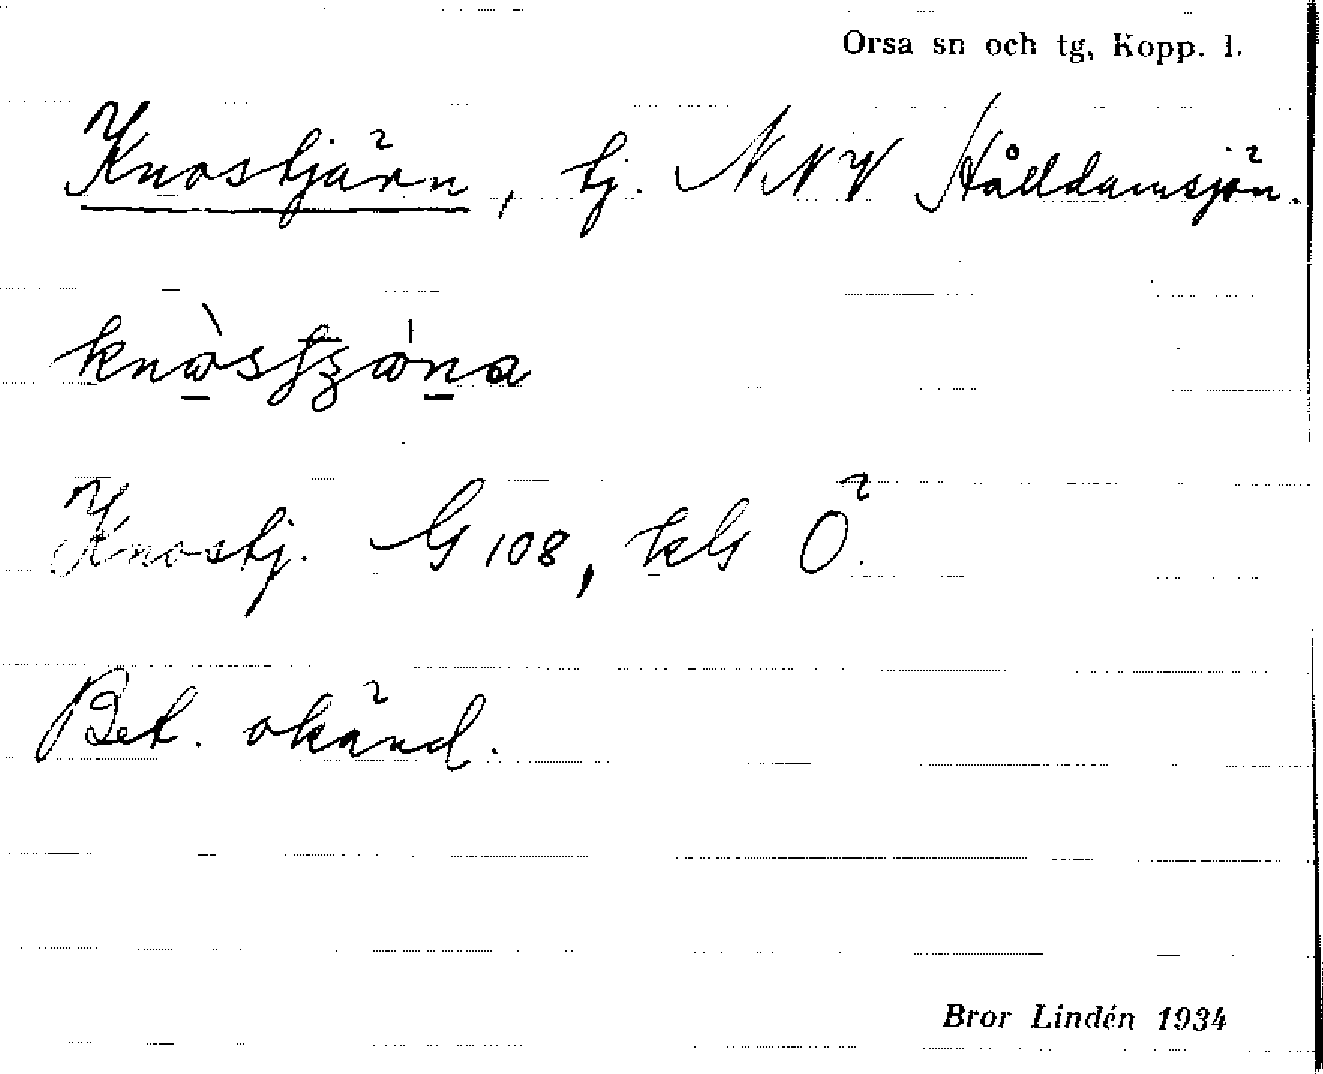 Orsa sn och tg, Kopp. l.
Knostjärn, tj. NNV Hålldamsjön.
Knostj. G 108, kG Ö.
Bet. okänd.
Bror Lindén 1934